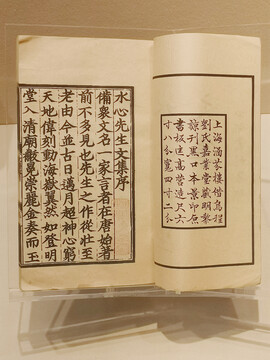 上海涵芬樓借烏程
劉氏嘉業堂藏明黎
諒刊黑口本景印原
書板匡高營造尺六
寸八分寬四寸二分
水心先生文集序
備衆文名一家言者在唐始著
前不多見也先生之作從壯至
老由今並古日邁月超神心窮
天地偉刻動海嶽翼然如登明
堂入清廟崇麗金奏而玉